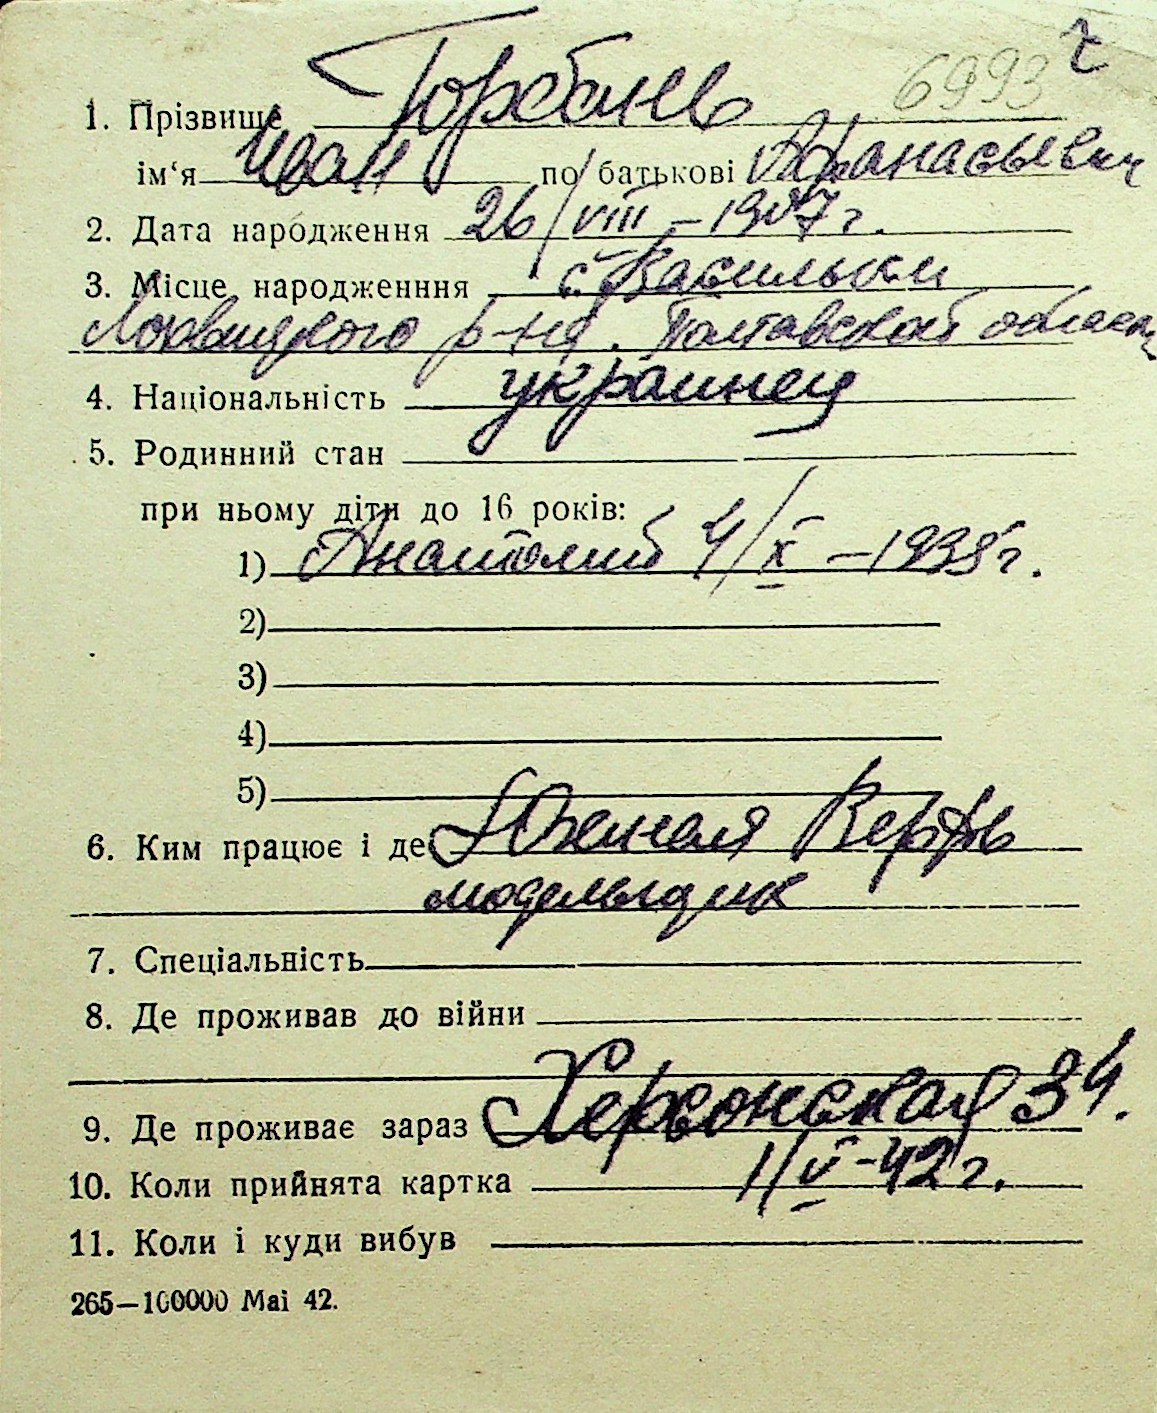 6993 г
1. Прізвище Горбань
ім‘я Иван по батькові Афанасьевич
2. Дата народження 26/VIII – 1907 г.
3. Місце народженння с. Васильки
Лохвицкого р-на. Полтавской области
4. Національність украинец
5. Родинний стан
при ньому діти до 16 років:
1) Анатолий 4/X – 1938 г.
2)
3)
4)
5)
6. Ким працює і де Южная Верфь
модельщик
7. Спеціальність
8. Де проживав до війни
9. Де проживає зараз Херсонская 34.
10. Коли прийнята картка 1/V-42 г.
11. Коли і куди вибув
265—100000 Mai 42.